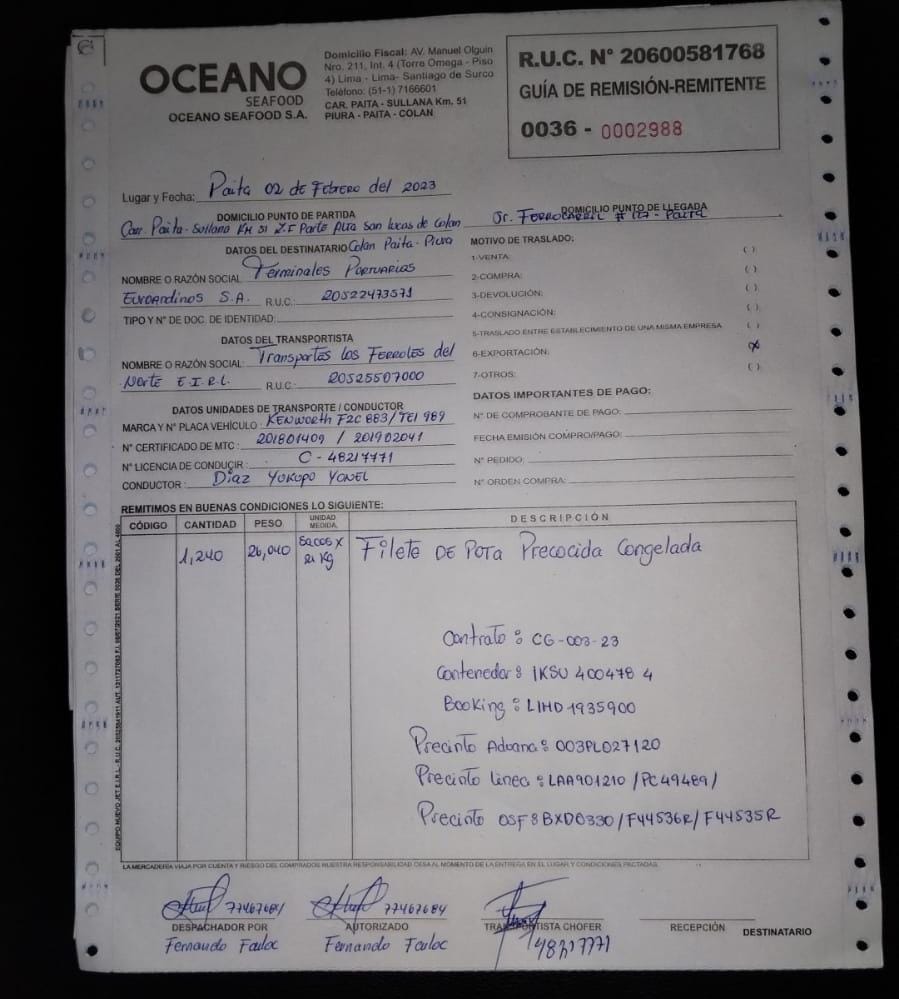 OCEANO
SEAFOOD
OCEANO SEAFOOD S.A.
Domicilio Fiscal: AV. Manuel Olguin
Nro. 211, Int. 4 (Torre Omega - Piso
4) Lima - Lima- Santiago de Surco
Teléfono: (51-1) 7166601
CAR. PAITA - SULLANA Km. 51
PIURA - PAITA - COLAN
R.U.C. N° 20600581768
GUÍA DE REMISIÓN-REMITENTE
0036 - 0002988
Lugar y Fecha: Paita 02 de Febrero del 2023
DOMICILIO PUNTO DE PARTIDA
Carr. Paita - Sullana KM 51 Z.I Parte Alta San Lucas de Colan
Colan Paita - Piura
DOMICILIO PUNTO DE LLEGADA
Jr. Ferrocarril # 127 - Paita
DATOS DEL DESTINATARIO
NOMBRE O RAZÓN SOCIAL Terminales Portuarios
Euroandinos S.A. R.U.C.: 20522473571
TIPO Y N° DE DOC. DE IDENTIDAD:
DATOS DEL TRANSPORTISTA
NOMBRE O RAZÓN SOCIAL: Transportes los Ferroles del
Norte E.I.R.L. R.U.C.: 20525507000
DATOS UNIDADES DE TRANSPORTE / CONDUCTOR
MARCA Y N° PLACA VEHÍCULO: KENWORTH F2C 883/TEI 989
N° CERTIFICADO DE MTC: 201801409 / 201902041
N° LICENCIA DE CONDUCIR: C - 48217771
CONDUCTOR: Díaz Yokupo Yonel
MOTIVO DE TRASLADO:
1-VENTA: ( )
2-COMPRA: ( )
3-DEVOLUCIÓN: ( )
4-CONSIGNACIÓN: ( )
5-TRASLADO ENTRE ESTABLECIMIENTO DE UNA MISMA EMPRESA ( )
6-EXPORTACIÓN: (x)
7-OTROS: ( )
DATOS IMPORTANTES DE PAGO:
N° DE COMPROBANTE DE PAGO:
FECHA EMISIÓN COMPRO/PAGO:
N° PEDIDO:
N° ORDEN COMPRA:
REMITIMOS EN BUENAS CONDICIONES LO SIGUIENTE:
CÓDIGO CANTIDAD PESO UNIDAD MEDIDA DESCRIPCIÓN
1,240 26,040 Sacos x 21 Kg Filete DE POTA Precocida Congelada
Contrato: CG-003-23
Contenedor: IKSU 400478 4
Booking: LIMD1935900
Precinto Aduana: 003PL027120
Precinto linea: LAA901210 /PC49489/
Precinto OSF8BXD0330/F44536R/F44535R
LA MERCADERÍA VIAJA POR CUENTA Y RIESGO DEL COMPRADOR NUESTRA RESPONSABILIDAD CESA AL MOMENTO DE LA ENTREGA EN EL LUGAR Y CONDICIONES PACTADAS.
77467684 77467684
DESPACHADOR POR AUTORIZADO TRANSPORTISTA CHOFER RECEPCIÓN DESTINATARIO
Fernando Fauloc Fernando Fauloc 48217771